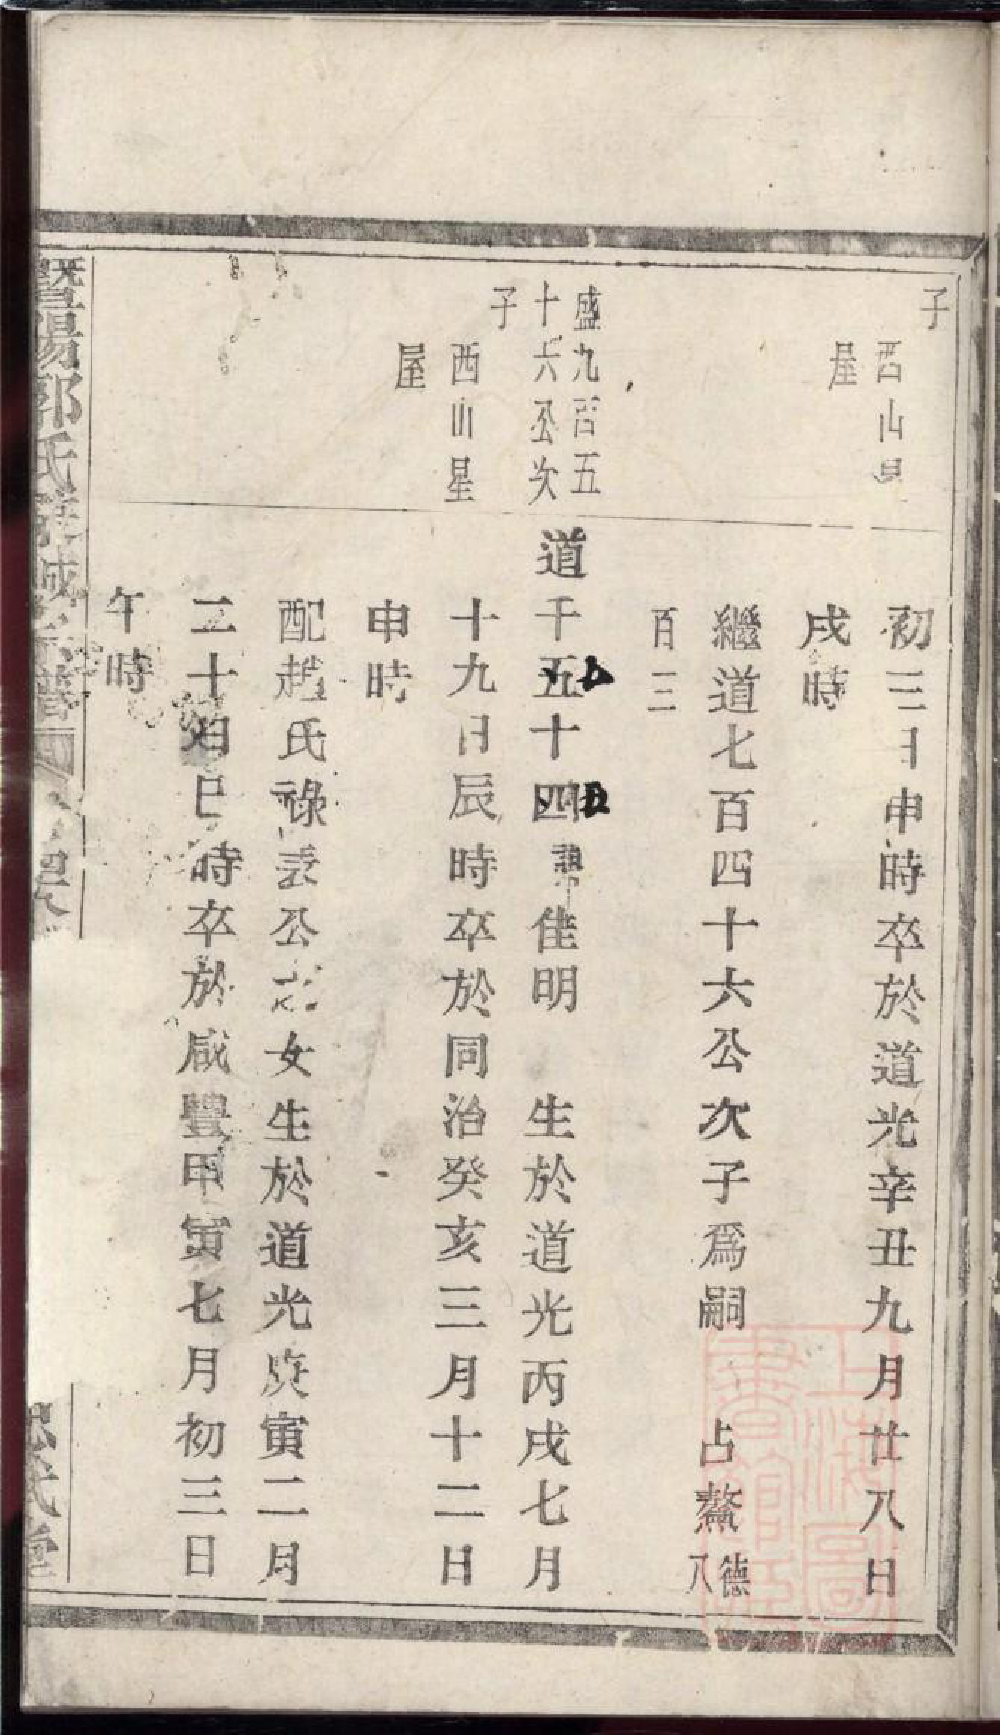 子
西山
屋
初三日申時卒於道光辛丑九月廿八日
戌時
繼道七百四十六公次子爲嗣 占鰲德八
百三
盛九百五
十六公次
子
西山星
屋
道千五十四 佳明 生於道光丙戌七月
十九日辰時卒於同治癸亥三月十二日
申時
配趙氏祿 公 女生於道光庚寅二月
二十 日巳時卒於咸豐甲寅七月初三日
午時
暨陽郭氏 宗譜
上海圖書館藏